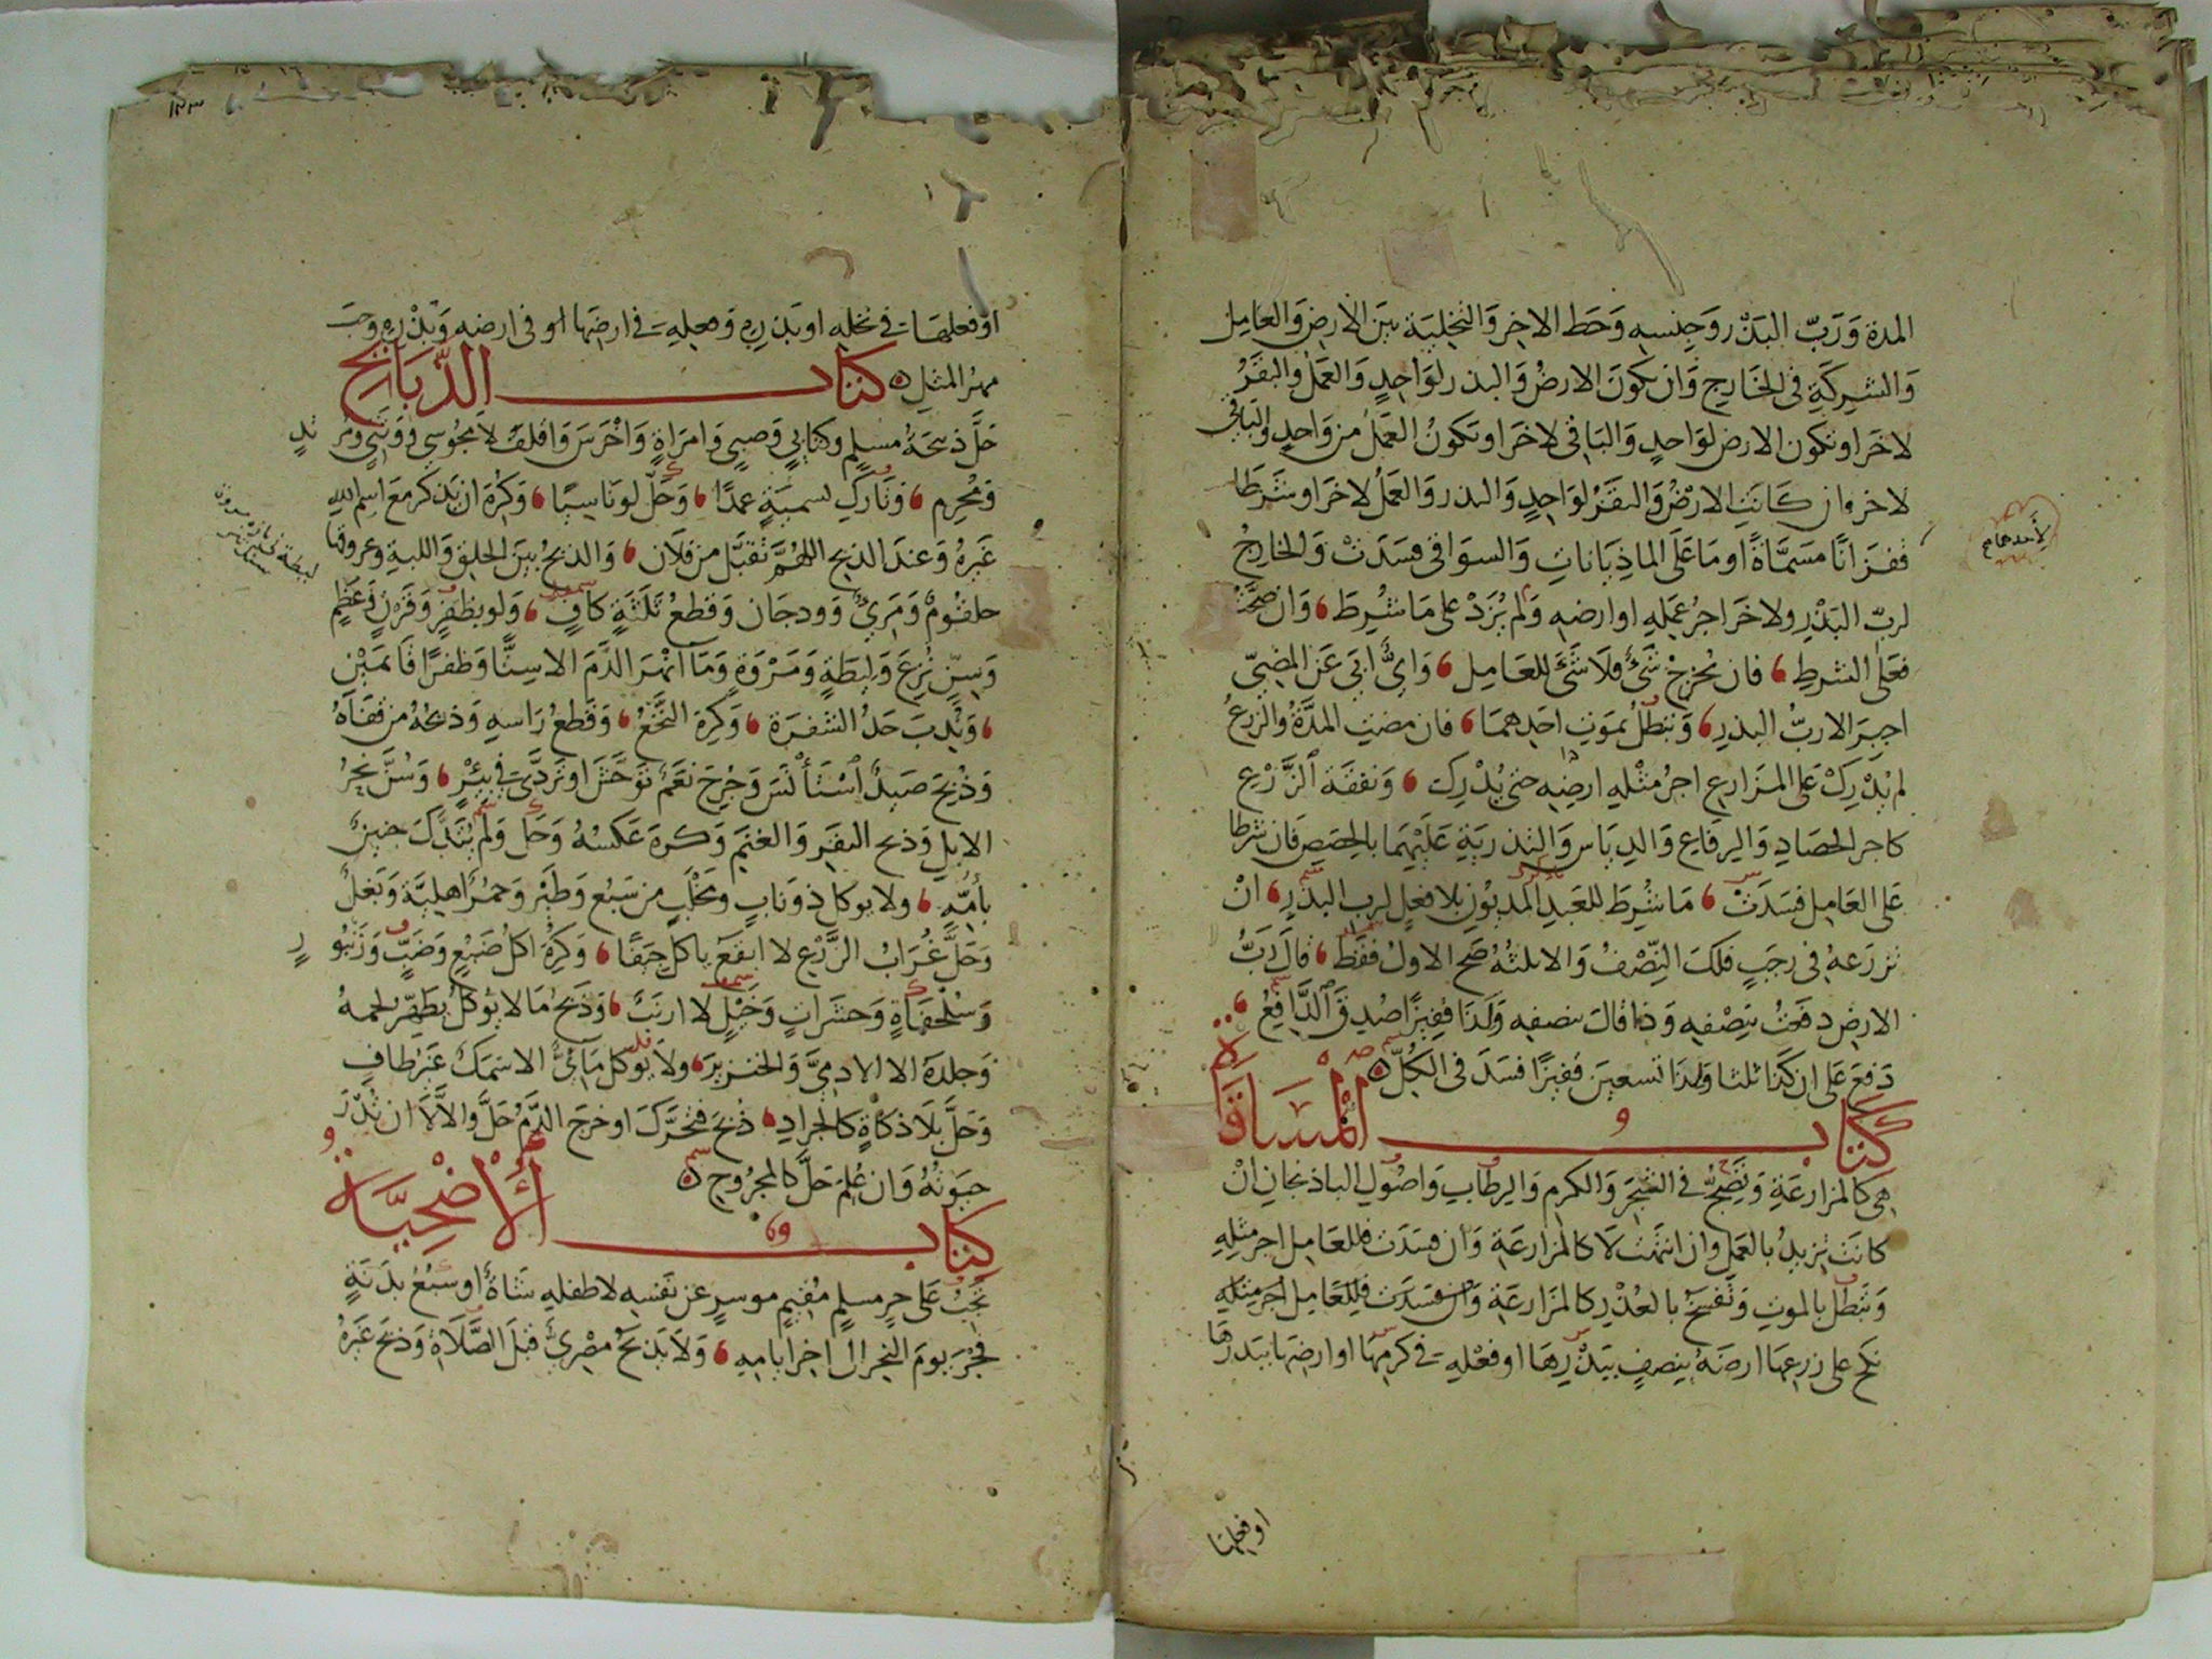 المدة وَرَبّ البَذْر وَجِنسهِ وَحَط الاخِرِ وَالتخلِيَة بَين الارضِ وَالعَامِل
وَالشِركَةِ فى الخَارِج وَان تكونَ الارضُ وَالبذر لوَاحِدٍ وَالعَمَل والبقَرُ
لاخَر او تكون الارض لوَاحدٍ وَالبَاقى لاخَر او تكونُ العَمَلُ من وَاحدٍ والبَاقى
لاخر وان كَانَتِ الارْضُ وَالبَقَرُ لوَاحِدٍ وَالبذر وَالعَمَلُ لاخَر او شَرَطَا
قفزَانًا مسَمَّاةً او مَا عَلَى الماذِيَاناتِ وَالسوَاقى فسَدَتْ وَالخارجُ
لربّ البَذْرِ ولاخَر اجرُ عَمَلِهِ او ارضه وَلَم يُزَدْ على مَا شُرِطَ وَان صَحَّتْ
فعَلَى الشرطِ فان لم يخرُجْ شَئٌ فلَا شَئَ للعَامِل وَاىٌّ ابَى عَن المُضِىّ
اجبِرَ الا ربُّ البذرِ وَتبطلُ بمَوتِ احَدِهمَا فان مضتِ المدَّةُ والزرعُ
لم يُدْرِكْ عَلى المزَارعِ اجرُ مثْلِهِ ارضِه حتى يُدْرِك وَنفقَة الزَّرْع
كاجر الحصَادِ وَالرِفَاعِ وَالدِيَاسِ وَالتذرِيَةِ عَلَيْهِمَا بالحِصَصِ فَان شرطَا
عَلى العَامِل فسَدَتْ مَا شُرِطَ للعَبدِ المديُونِ بلا فعلٍ لرب البَذرِ انْ
تزرَعهُ فى رجَبٍ فلَكَ النِّصْفُ وَالا ثلثُهُ صَح الاولُ فقَط قالَ رَبُّ
الارضِ دفعتُ بنِصْفِهِ وَذا قال بنصفهِ وَلَدَا قفِيزًا صُدِقَ الدَّافِعُ
دَفعَ عَلى ان كذَا ثلثا وَلذَا تسعِينَ قفيزًا فسَدَ فى الكُلّ
كتاب المُسَاقَاة
هى كالمزارعَةِ وَتَصِحُّ فى الشَجَرِ وَالكرمِ وَالرِطَابِ وَاصُولِ الباذنجَانِ انْ
كانت تزيدُ بالعَمَلِ وان انتهَت لَا كالمزارعَةِ وَان فسَدَت فللعَامِل اجر مثلِهِ
وَتبطلُ بالموتِ وَتفسَخُ بالعُذْرِ كالمزَارعَةِ وَان فسَدَت فللعَامِل اجر مثلِهِ
نكح على زرعِهَا ارضَهُ بنصفٍ ببَذْرِهَا او فعْلِهِ فى كرمِهَا او ارضِهَا ببَذرهَا
او فعلِهَا
او فعلهَا فى نخلِهِ او بَذرِهِ وَعملِهِ فى ارضِهَا او فى ارضهِ وَبَذْرِهِ وجَبَ
مهرُ المثلِ كتاب الذَّبَائِحِ
حَلَّ ذبيحَةُ مسلِمٍ وكتابىٍ وَصبىٍ وَامرَاةٍ وَاخْرَسَ وَاقلَفَ لَا مجُوسىٍ وَوَثنىٍ وَمُرتدٍ
وَمُحْرِم وَتَارِكِ تسميَةٍ عمدًا وَحَلَّ لو ناسِيًا وَكُرِهَ ان يَذكرَ معَ اسم الله
غَيرَهُ وَعندَ الذبحِ اللهُمَّ تقبَّل من فلَان وَالذبحُ بَينَ الحلقِ وَاللبةِ وعروقها
حلقُومٌ وَمَرِىٌّ وَودجَان وَقطعُ ثَلثَةٍ كافٍ وَلو بظفُرٍ وَقَرْنٍ وَعَظْمٍ
وَسِنٍّ نُزِعَ وَلِيطَةٍ وَمَرْوَةٍ وَمَا انْهَرَ الدَّمَ الا سِنًّا وَظفرًا قَائمَيْنِ
وَنُدِبَ حَدُّ الشفرَة وَكُرِهَ النَّخْعُ وَقَطعُ رَاسهِ وَذبحُهُ من قفَاهُ
وَذُبِحَ صَيدٌ اسْتَأْنَسَ وَجُرِحَ نعَمٌ توَحَّشَ او تَردَّى فِى بِئْرٍ وَسُنَّ نحرُ
الابِلِ وَذبح البقَرِ وَالغنَمِ وَكرهَ عَكسُهُ وَحَلَّ وَلَم يَتذَكَّ جنينٌ
بأُمِّهِ ولا يوكل ذو نابٍ وَمخلَبٍ من سَبُعٍ وَطَيْرٍ وَحمُرٌ اهليَّة وَبَغلٌ
وَحَلَّ غُرَابُ الزَّرْعِ لا ابقَع ياكل جِيَفًا وَكُرِهَ اكلُ ضَبُعٍ وَضَبٍّ وَزَنبُورٍ
وَسُلحفَاةٍ وَحشَرَاتٍ وَخَيْلٍ لَا ارنَبٌ وَذبحُ مَا لا يوكلُ يطَهّر لحمهُ
وَجلدَهُ الا الادمِىَّ وَالخنزيرَ ولَا يوكل مَائِىٌّ الا سمَكٌ غَيرُ طافٍ
وَحَلَّ بِلَا ذكاةٍ كالجرادِ ذُبحَ فتحَرَّكَ او خرج الدَّمُ حَلَّ وَالا لَا ان لم تُدْرَ
حيوتُهُ وَان عُلِمَ حَلَّ كالمجرُوحِ
كتاب الأُضْحِيَّة
تجِبُ عَلى حرٍ مسلمٍ مُقيمٍ موسرٍ عن نَفسِهِ لا طفلهِ شَاةٌ او سُبُعُ بدَنَةٍ
فجْرَ يومَ النحر الى اخرِ ايامِهِ وَلَا يَذبَحُ مصْرِىٌّ قبلَ الصَّلَاةِ وَذبَحَ غَيرُهُ